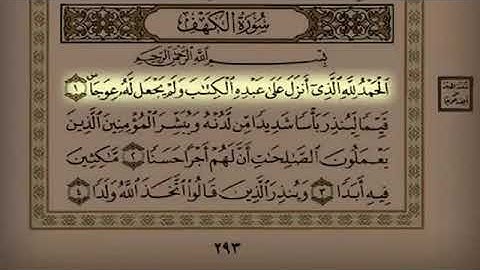 سُورَةُ الكَهْفِ
بِسْمِ اللَّهِ الرَّحْمَٰنِ الرَّحِيمِ
الْحَمْدُ لِلَّهِ الَّذِي أَنزَلَ عَلَىٰ عَبْدِهِ الْكِتَابَ وَلَمْ يَجْعَل لَّهُ عِوَجًا ۜ ١
قَيِّمًا لِّيُنذِرَ بَأْسًا شَدِيدًا مِّن لَّدُنْهُ وَيُبَشِّرَ الْمُؤْمِنِينَ الَّذِينَ
يَعْمَلُونَ الصَّالِحَاتِ أَنَّ لَهُمْ أَجْرًا حَسَنًا ٢ مَّاكِثِينَ
فِيهِ أَبَدًا ٣ وَيُنذِرَ الَّذِينَ قَالُوا اتَّخَذَ اللَّهُ وَلَدًا ٤
٢٩٣